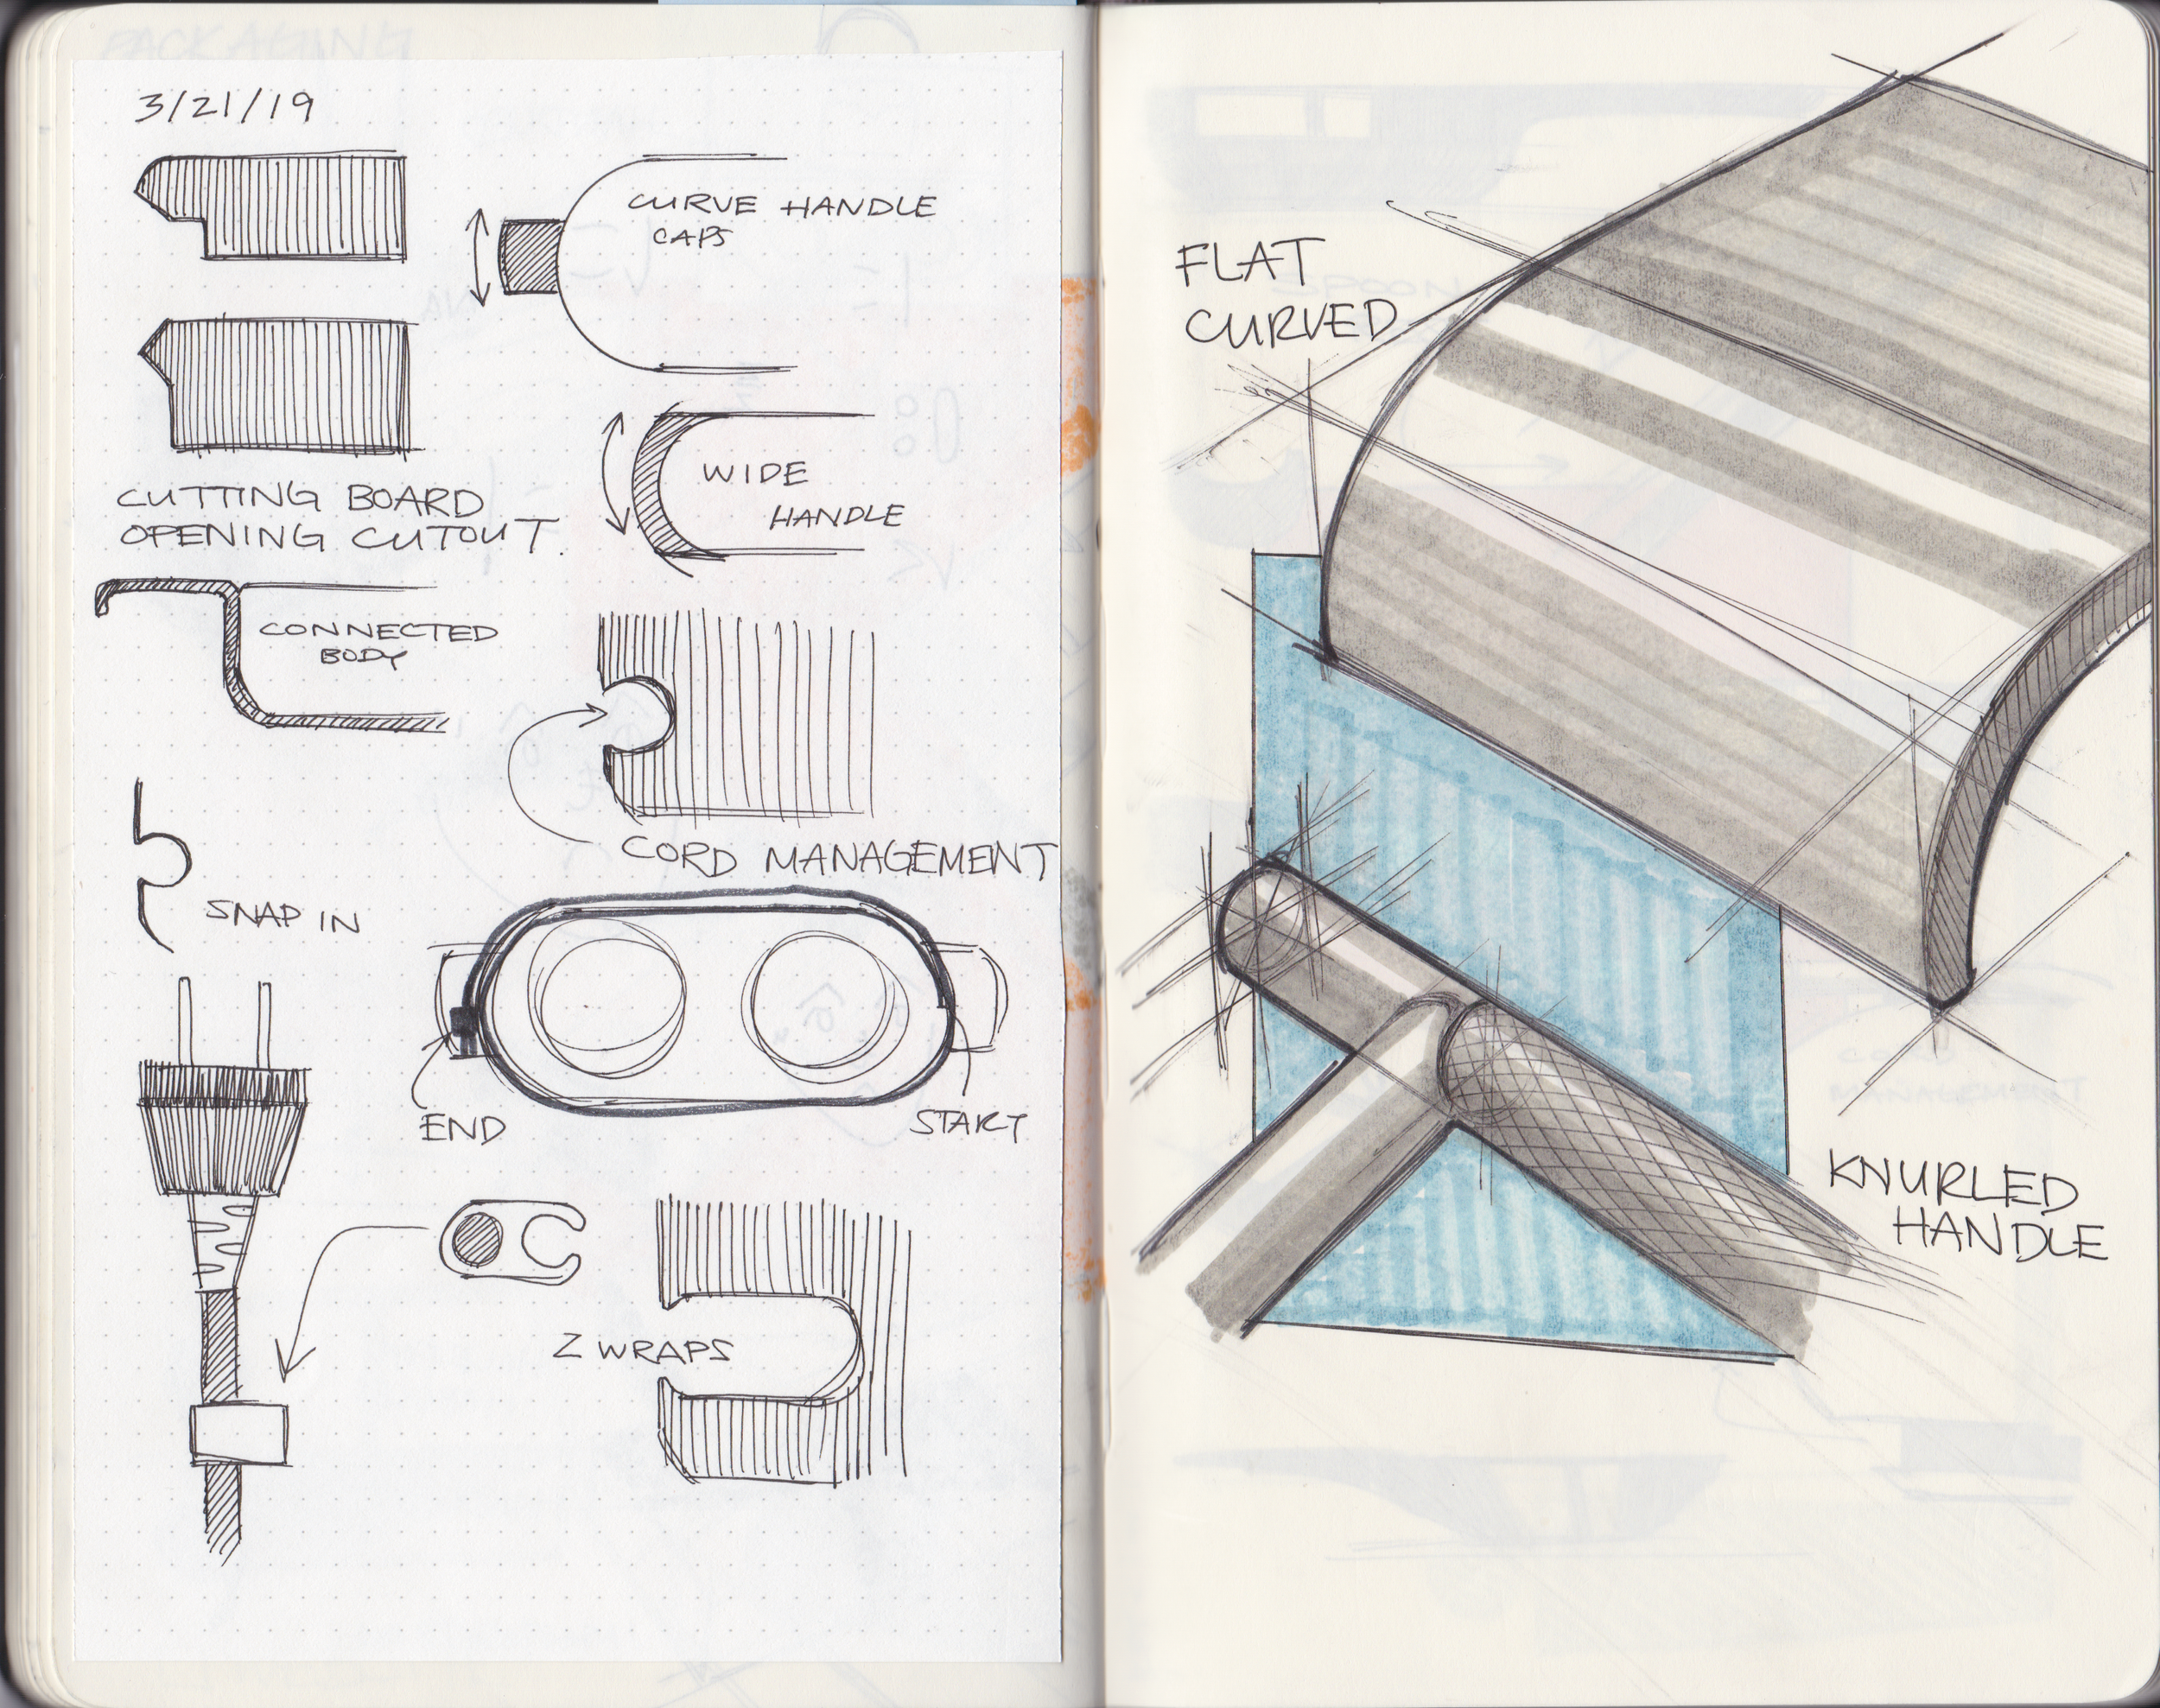 PACKAGING
3/21/19
CURVE HANDLE
CAPS
CUTTING BOARD
OPENING CUTOUT.
WIDE
HANDLE
CONNECTED
BODY
CORD MANAGEMENT
SNAP IN
END
START
Z WRAPS
FLAT
CURVED
KNURLED
HANDLE